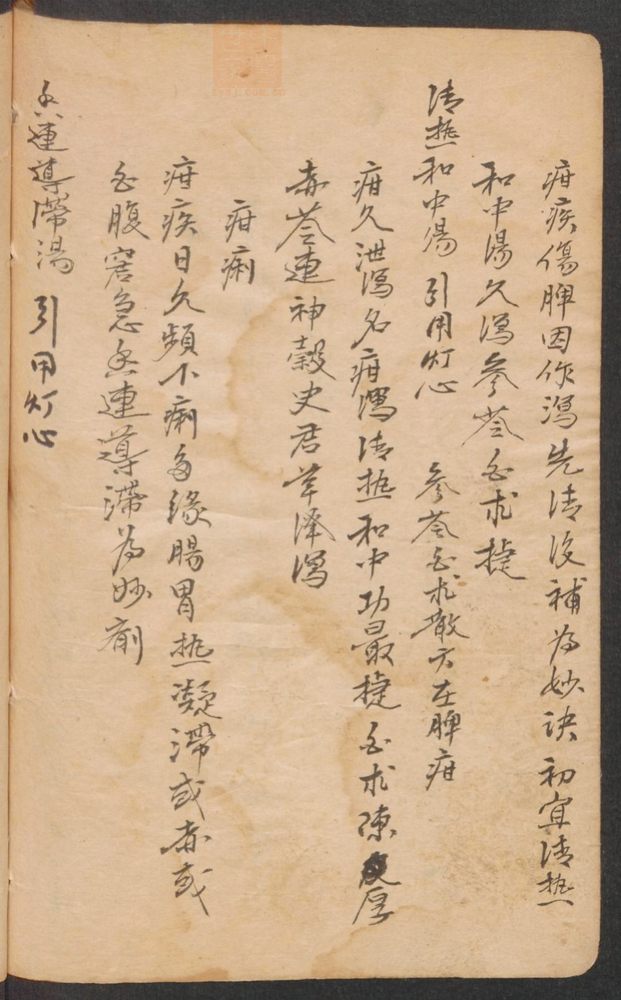 疳疾傷脾因作瀉先清後補為妙訣初宜清热
和中湯久瀉參苓白朮捷
清热和中湯 引用灯心 參苓白朮散方在脾疳
疳久泄瀉名疳瀉清热和中功最捷白朮陳皮厚
赤苓連神穀史君草澤瀉
疳痢
疳疾日久頻下痢多緣腸胃热凝滯或赤或
白腹窘急香連導滯為妙劑
香連導滯湯 引用灯心